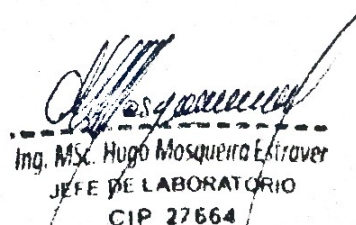 Ing. MSc. Hugo Mosqueira Estraver
JEFE DE LABORATORIO
CIP 27664